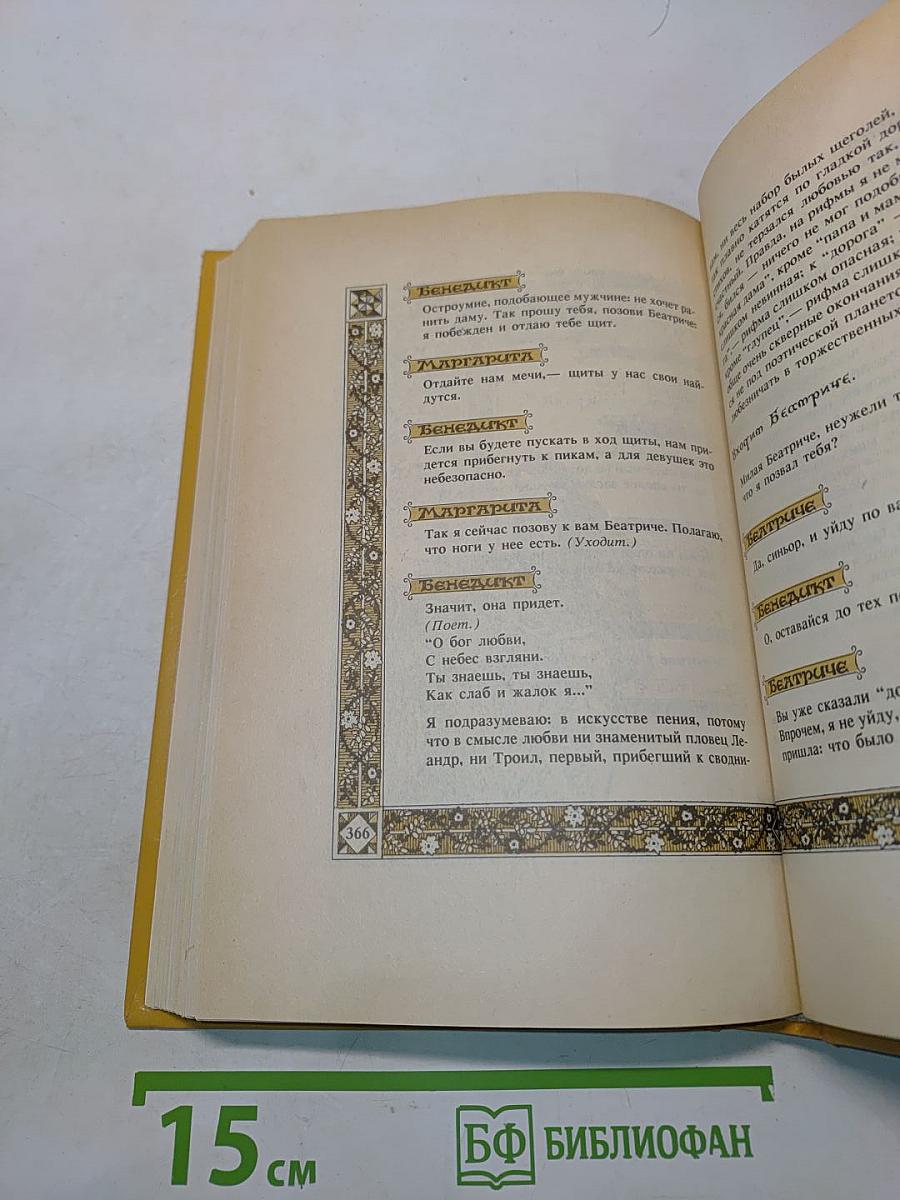 Бенедикт
Остроумие, подобающее мужчине: не хочет ра-
нить даму. Так прошу тебя, позови Беатриче:
я побежден и отдаю тебе щит.
Маргарита
Отдайте нам мечи,— щиты у нас свои най-
дутся.
Бенедикт
Если вы будете пускать в ход щиты, нам при-
дется прибегнуть к пикам, а для девушек это
небезопасно.
Маргарита
Так я сейчас позову к вам Беатриче. Полагаю,
что ноги у нее есть. (Уходит.)
Бенедикт
Значит, она придет.
(Поет.)
"О бог любви,
С небес взгляни.
Ты знаешь, ты знаешь,
Как слаб и жалок я..."
Я подразумеваю: в искусстве пения, потому
что в смысле любви ни знаменитый пловец Ле-
андр, ни Троил, первый, прибегший к сводни-
366
ни весь набор былых щеголей,
плавно катятся по гладкой
не терзался любовью так,
Правда, на рифмы я не
бился — ничего не мог
дама", кроме "папа и
слишком невинная; к "дорога" —
рифма слишком опасная;
кроме "глупец",— рифма
очень скверные окончания
не под поэтической
любезничать в торжественных
Входит Беатриче.
Милая Беатриче, неужели
что я позвал тебя?
Беатриче
Да, синьор, и уйду по
Бенедикт
О, оставайся до тех
Беатриче
Вы уже сказали
Впрочем, я не уйду,
пришла: что было
15 см
БФ БИБЛИОФАН